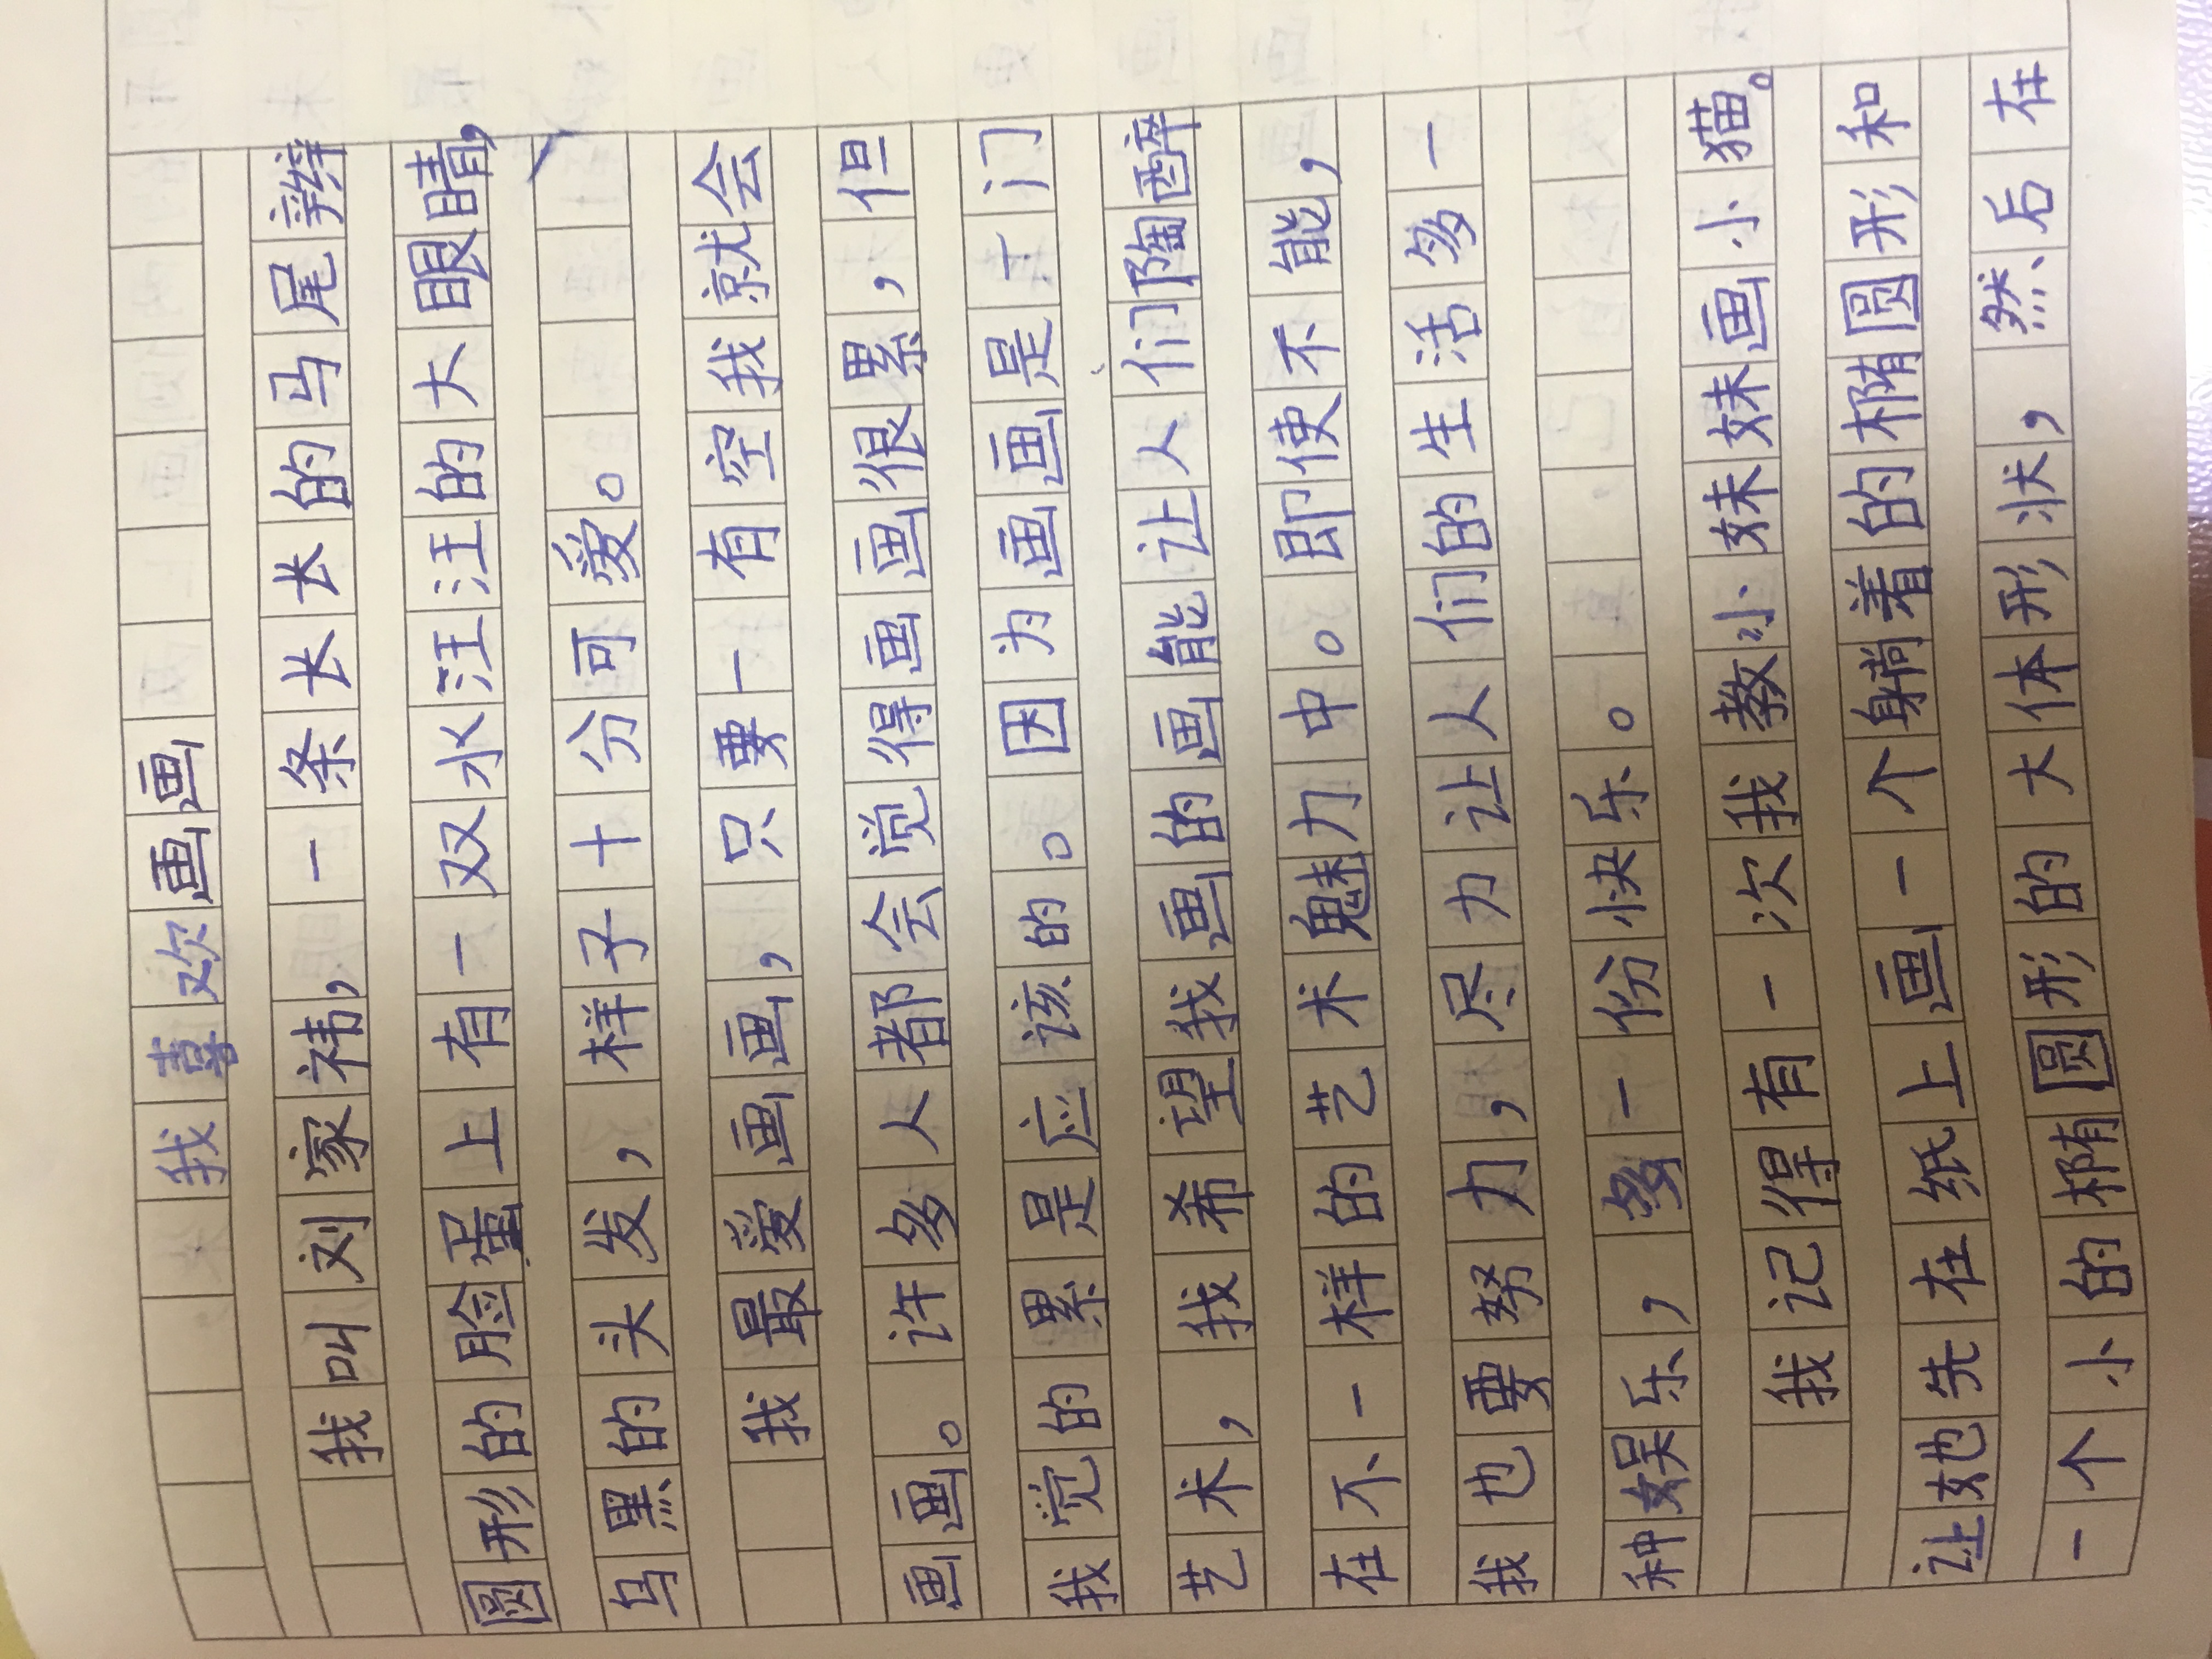 我喜欢画画
我叫刘家祎,一条长长的马尾辫
圆形的脸蛋上有一双水汪汪的大眼睛,
乌黑的头发,样子十分可爱。
我最爱画画,只要一有空我就会
画画。许多人都会觉得画画很累,但
我觉的累是应该的。因为画画是一门
艺术,我希望我画的画能让人们陶醉
在不一样的艺术魅力中。即使不能,
我也要努力,尽力让人们的生活多一
种娱乐,多一份快乐。
我记得有一次我教小妹妹画小猫。
让她先在纸上画一个躺着的椭圆形和
一个小的椭圆形的大体形状,然后在